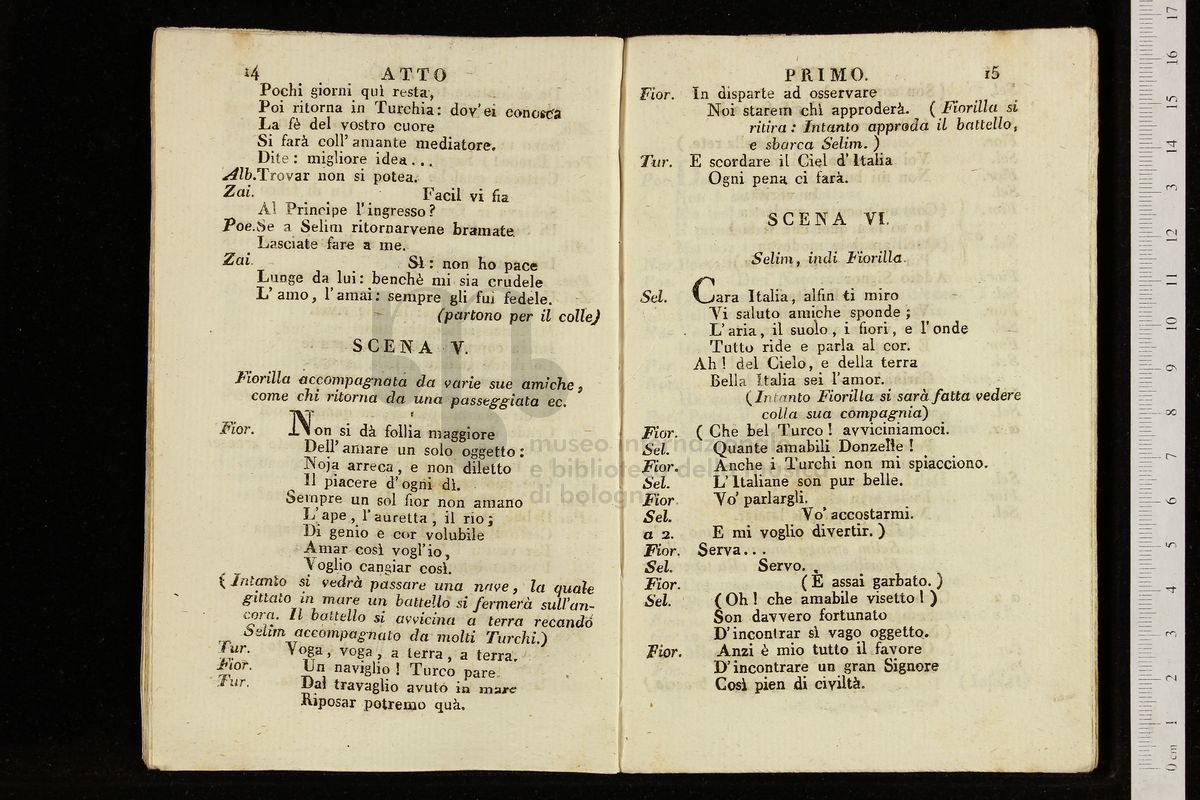 14 ATTO
Pochi giorni quì resta,
Poi ritorna in Turchia: dov'ei conosca
La fè del vostro cuore
Si farà coll'amante mediatore.
Dite: migliore idea...
Alb. Trovar non si potea.
Zai. Facil vi fia
Al Principe l'ingresso?
Poe. Se a Selim ritornarvene bramate.
Lasciate fare a me.
Zai. Sì: non ho pace
Lunge da lui: benchè mi sia crudele
L'amo, l'amai: sempre gli fui fedele.
(partono per il colle)
SCENA V.
Fiorilla accompagnata da varie sue amiche,
come chi ritorna da una passeggiata ec.
Fior. Non si dà follia maggiore
Dell'amare un solo oggetto:
Noja arreca, e non diletto
Il piacere d'ogni dì.
Sempre un sol fior non amano
L'ape, l'auretta, il rio;
Di genio e cor volubile
Amar così vogl'io,
Voglio cangiar così.
(Intanto si vedrà passare una nave, la quale
gittato in mare un battello si fermerà sull'an-
cora. Il battello si avvicina a terra recando
Selim accompagnato da molti Turchi.)
Tur. Voga, voga, a terra, a terra.
Fior. Un naviglio! Turco pare
Tur. Dal travaglio avuto in mare
Riposar potremo quà.
PRIMO. 15
Fior. In disparte ad osservare
Noi starem chì approderà. (Fiorilla si
ritira: Intanto approda il battello,
e sbarca Selim.)
Tur. E scordare il Ciel d'Italia
Ogni pena ci farà.
SCENA VI.
Selim, indi Fiorilla.
Sel. Cara Italia, alfin ti miro
Vi saluto amiche sponde;
L'aria, il suolo, i fiori, e l'onde
Tutto ride e parla al cor.
Ah! del Cielo, e della terra
Bella Italia sei l'amor.
(Intanto Fiorilla si sarà fatta vedere
colla sua compagnia)
Fior. (Che bel Turco! avviciniamoci.
Sel. Quante amabili Donzelle!
Fior. Anche i Turchi non mi spiacciono.
Sel. L'Italiane son pur belle.
Fior Vo' parlargli.
Sel. Vo' accostarmi.
a 2. E mi voglio divertir.)
Fior. Serva...
Sel. Servo.
Fior. (È assai garbato.)
Sel. (Oh! che amabile visetto!)
Son davvero fortunato
D'incontrar sì vago oggetto.
Fior. Anzi è mio tutto il favore
D'incontrare un gran Signore
Così pien di civiltà.
museo internazionale
e biblioteca della musica
di bologna
0 cm 1 2 3 4 5 6 7 8 9 10 11 12 13 14 15 16 17